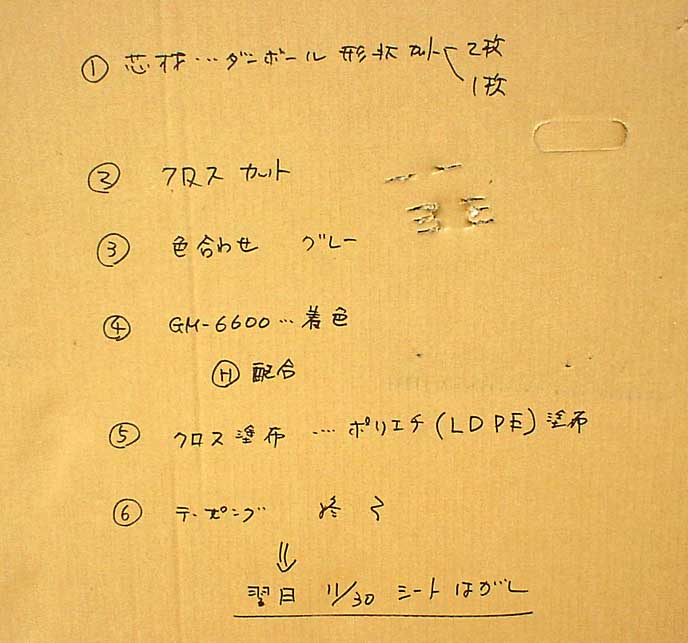 ① 芯材…ダンボール 形状カット 2枚
1枚
② クロス カット
③ 色合わせ グレー
④ GM-6600…着色
Ⓗ 配合
⑤ クロス塗布 …ポリエチ(LDPE)塗布
⑥ テーピング 終了
⇓
翌日 11/30 シートはがし